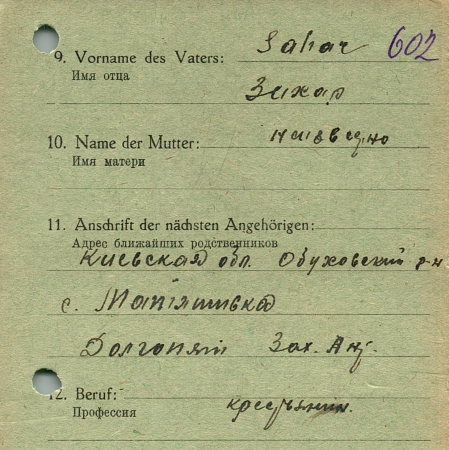 602
Sahar
9. Vorname des Vaters:
Имя отца
Захар
неизвестно
10. Name der Mutter:
Имя матери
11. Anschrift der nächsten Angehörigen:
Адрес ближайших родственников
Киевская обл. Обуховский р-н
с.
Зах. Анд.
12. Beruf:
Профессия
крестьянин.